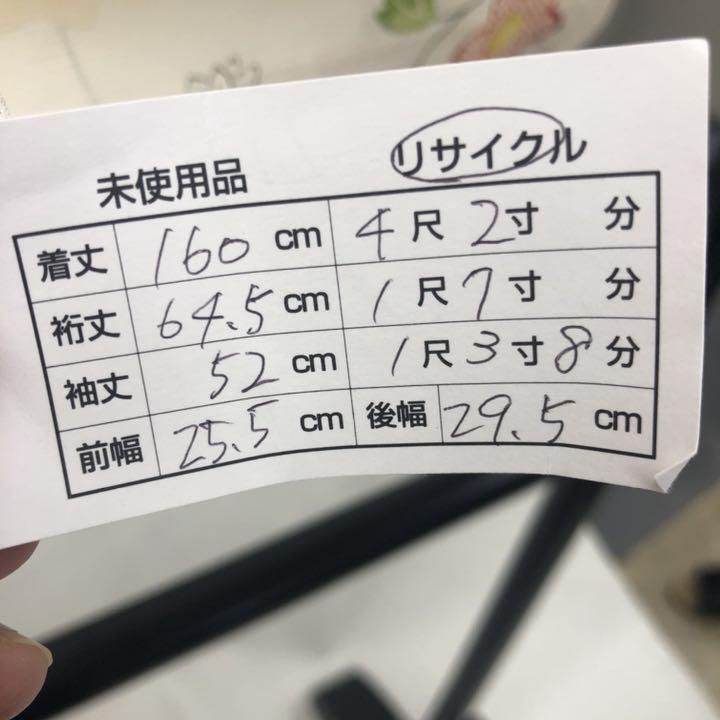 未使用品 リサイクル
着丈 160 cm 4 尺 2 寸 分
裄丈 64.5 cm 1 尺 7 寸 分
袖丈 52 cm 1 尺 3 寸 8 分
前幅 25.5 cm 後幅 29.5 cm